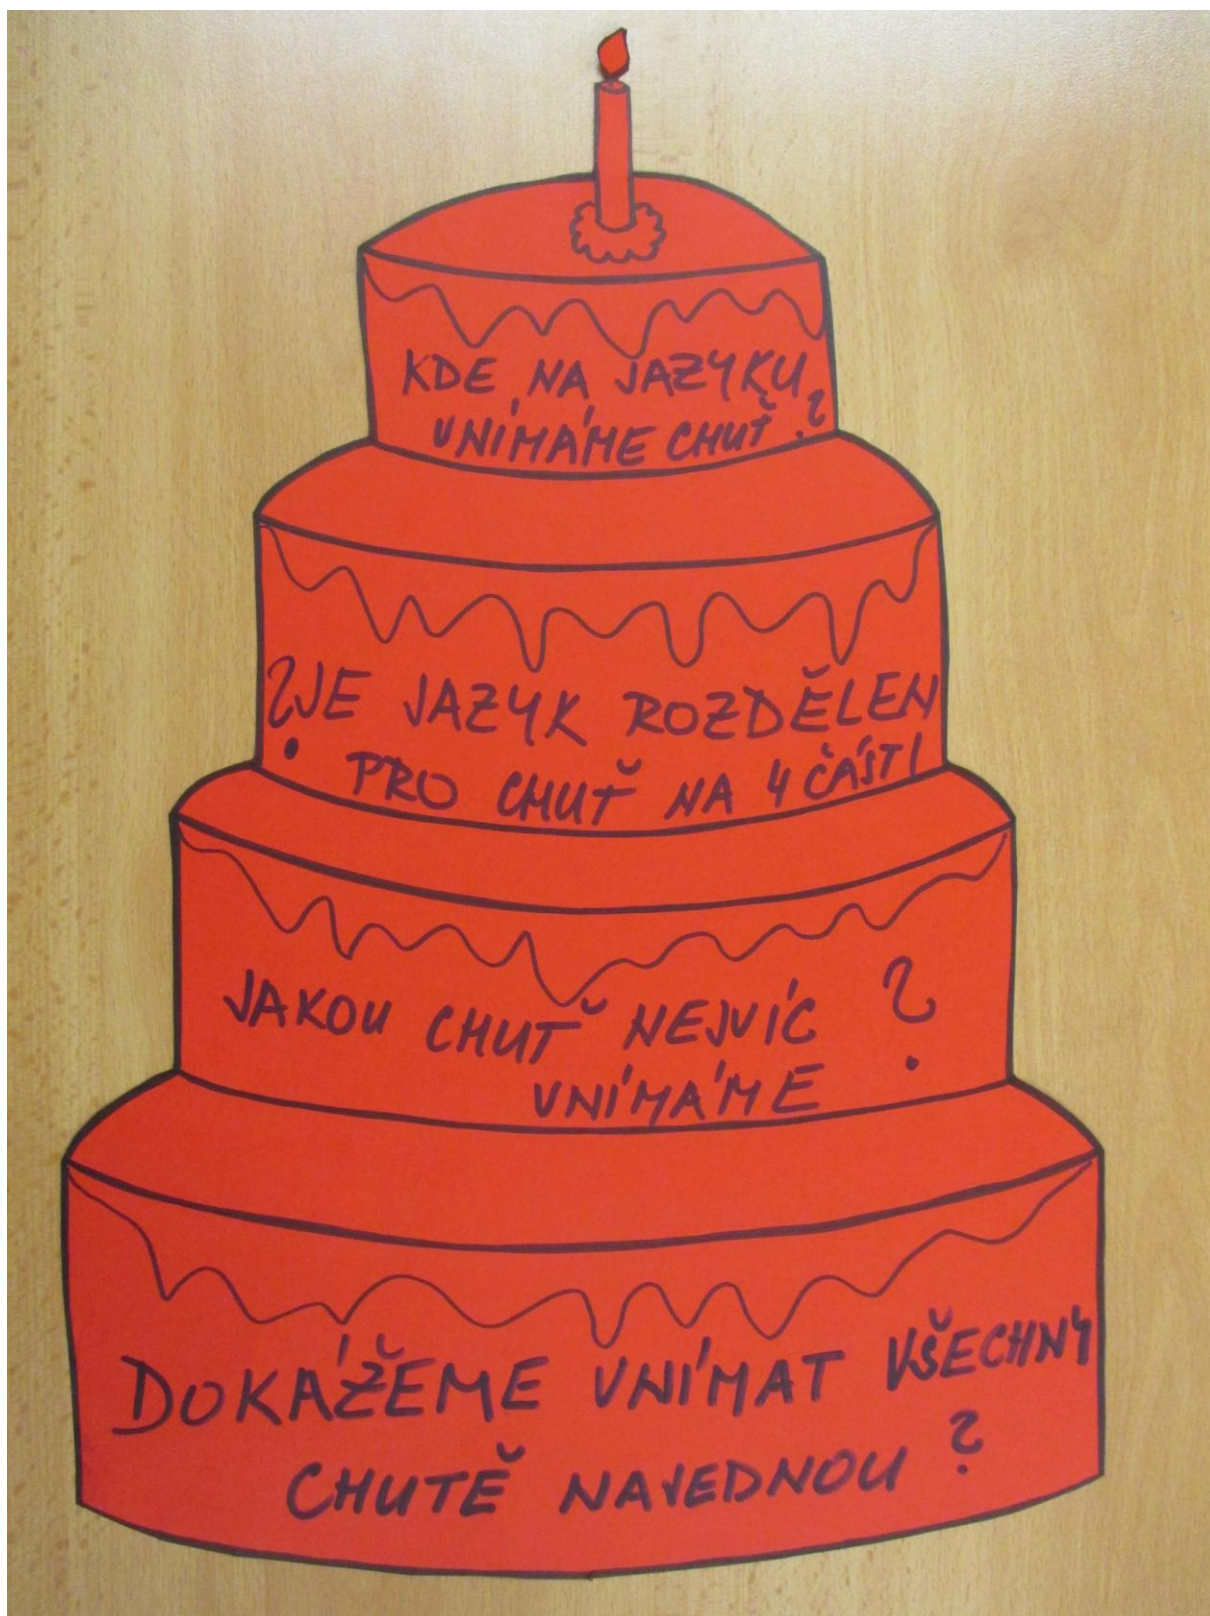 KDE NA JAZYKU
VNÍMÁME CHUŤ ?
?JE JAZYK ROZDĚLEN
PRO CHUŤ NA 4 ČÁSTI
JAKOU CHUŤ NEJVÍC ?
VNÍMÁME
DOKÁŽEME VNÍMAT VŠECHNY
CHUTĚ NAJEDNOU ?